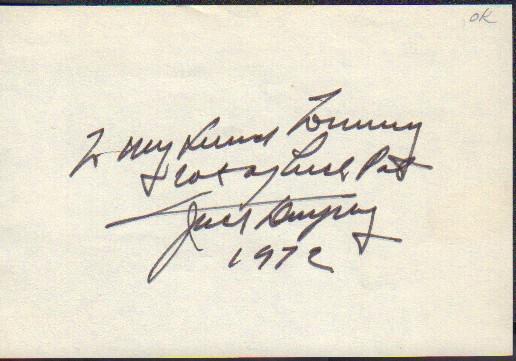 OK
To My Friend Tommy
+ lots of luck Pat
Jack Dempsey
1972